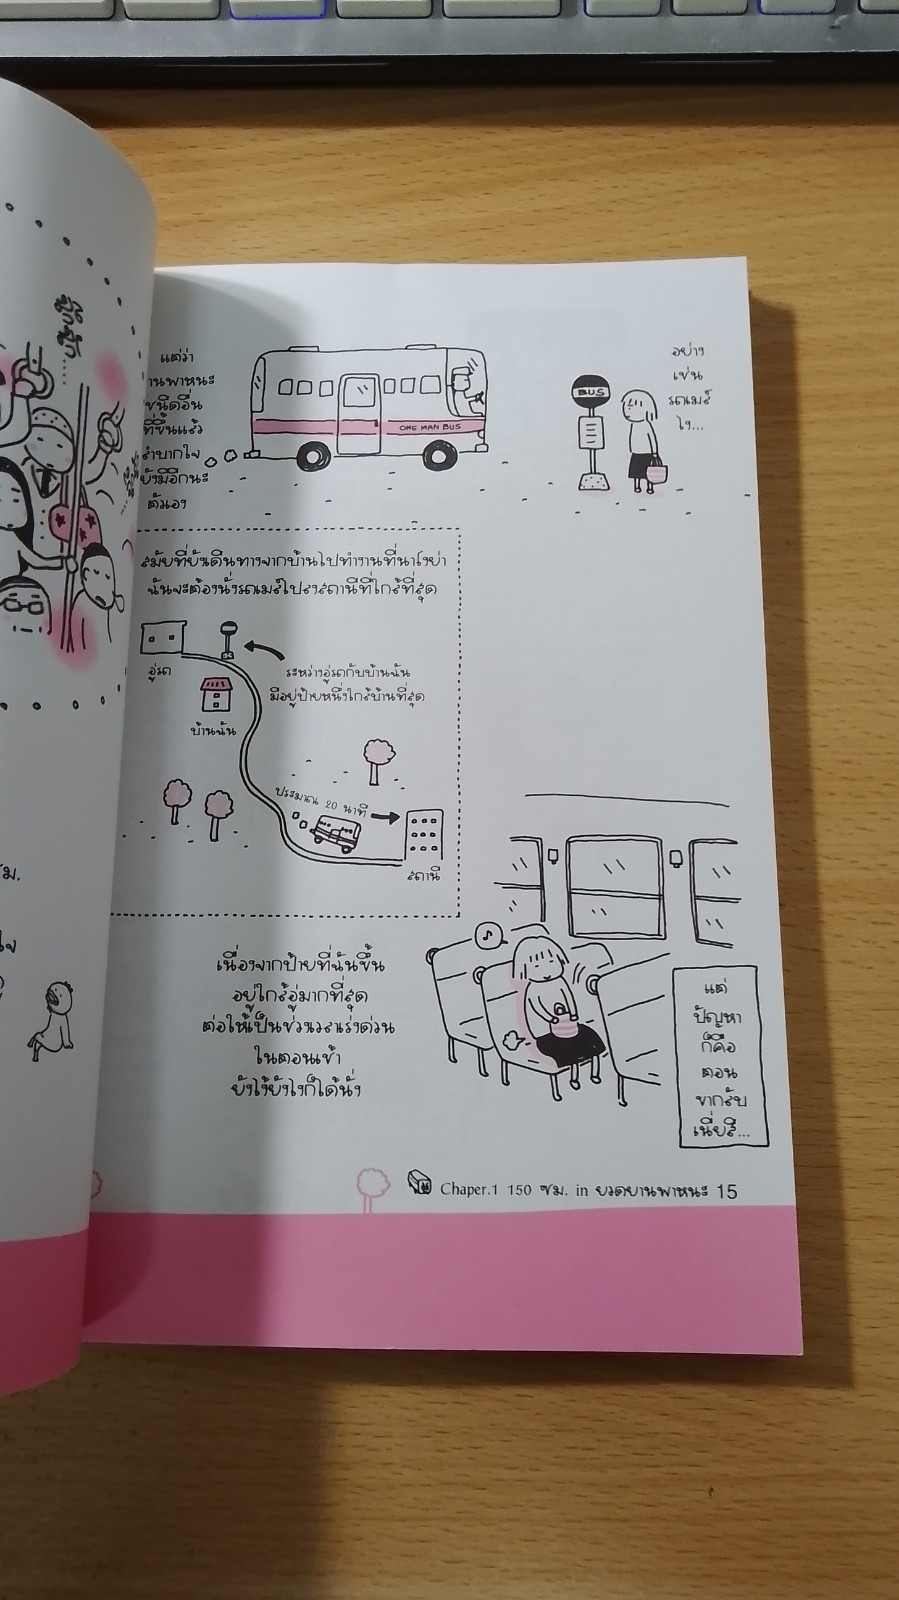 แต่ว่า
ชนิดอื่น
ที่ขึ้นแล้ว
ลำบากใจ
ยังมีอีกนะ
ตัวเอง
ONE MAN BUS
BUS
อย่าง
เช่น
รถเมล์
ไง...
สมัยที่ยังเดินทางจากบ้านไปทำงานที่นาโงย่า
ฉันจะต้องนั่งรถเมล์ไปลงสถานีที่ใกล้ที่สุด
อู่รถ
ระหว่างอู่รถกับบ้านฉัน
มีอยู่ป้ายหนึ่งใกล้บ้านที่สุด
บ้านฉัน
ประมาณ 20 นาที
สถานี
เนื่องจากป้ายที่ฉันขึ้น
อยู่ใกล้อู่มากที่สุด
ต่อให้เป็นช่วงเวลาเร่งด่วน
ในตอนเช้า
ยังไงยังไงก็ได้นั่ง
แต่
ปัญหา
ก็คือ
ตอน
ขากลับ
เนี่ยสิ...
Chaper.1 150 ซม. in ยวดยานพาหนะ 15